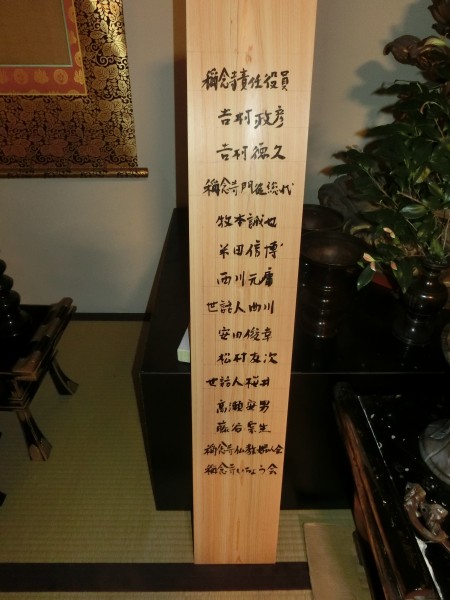 稱念寺責任役員
吉村政彦
吉村德久
稱念寺門徒総代
牧本誠也
米田信博
西川元庸
世話人西川
安田俊章
松村友次
世話人桜井
高瀬安男
藤谷宗生
稱念寺仏教婦人会
稱念寺いちょう会